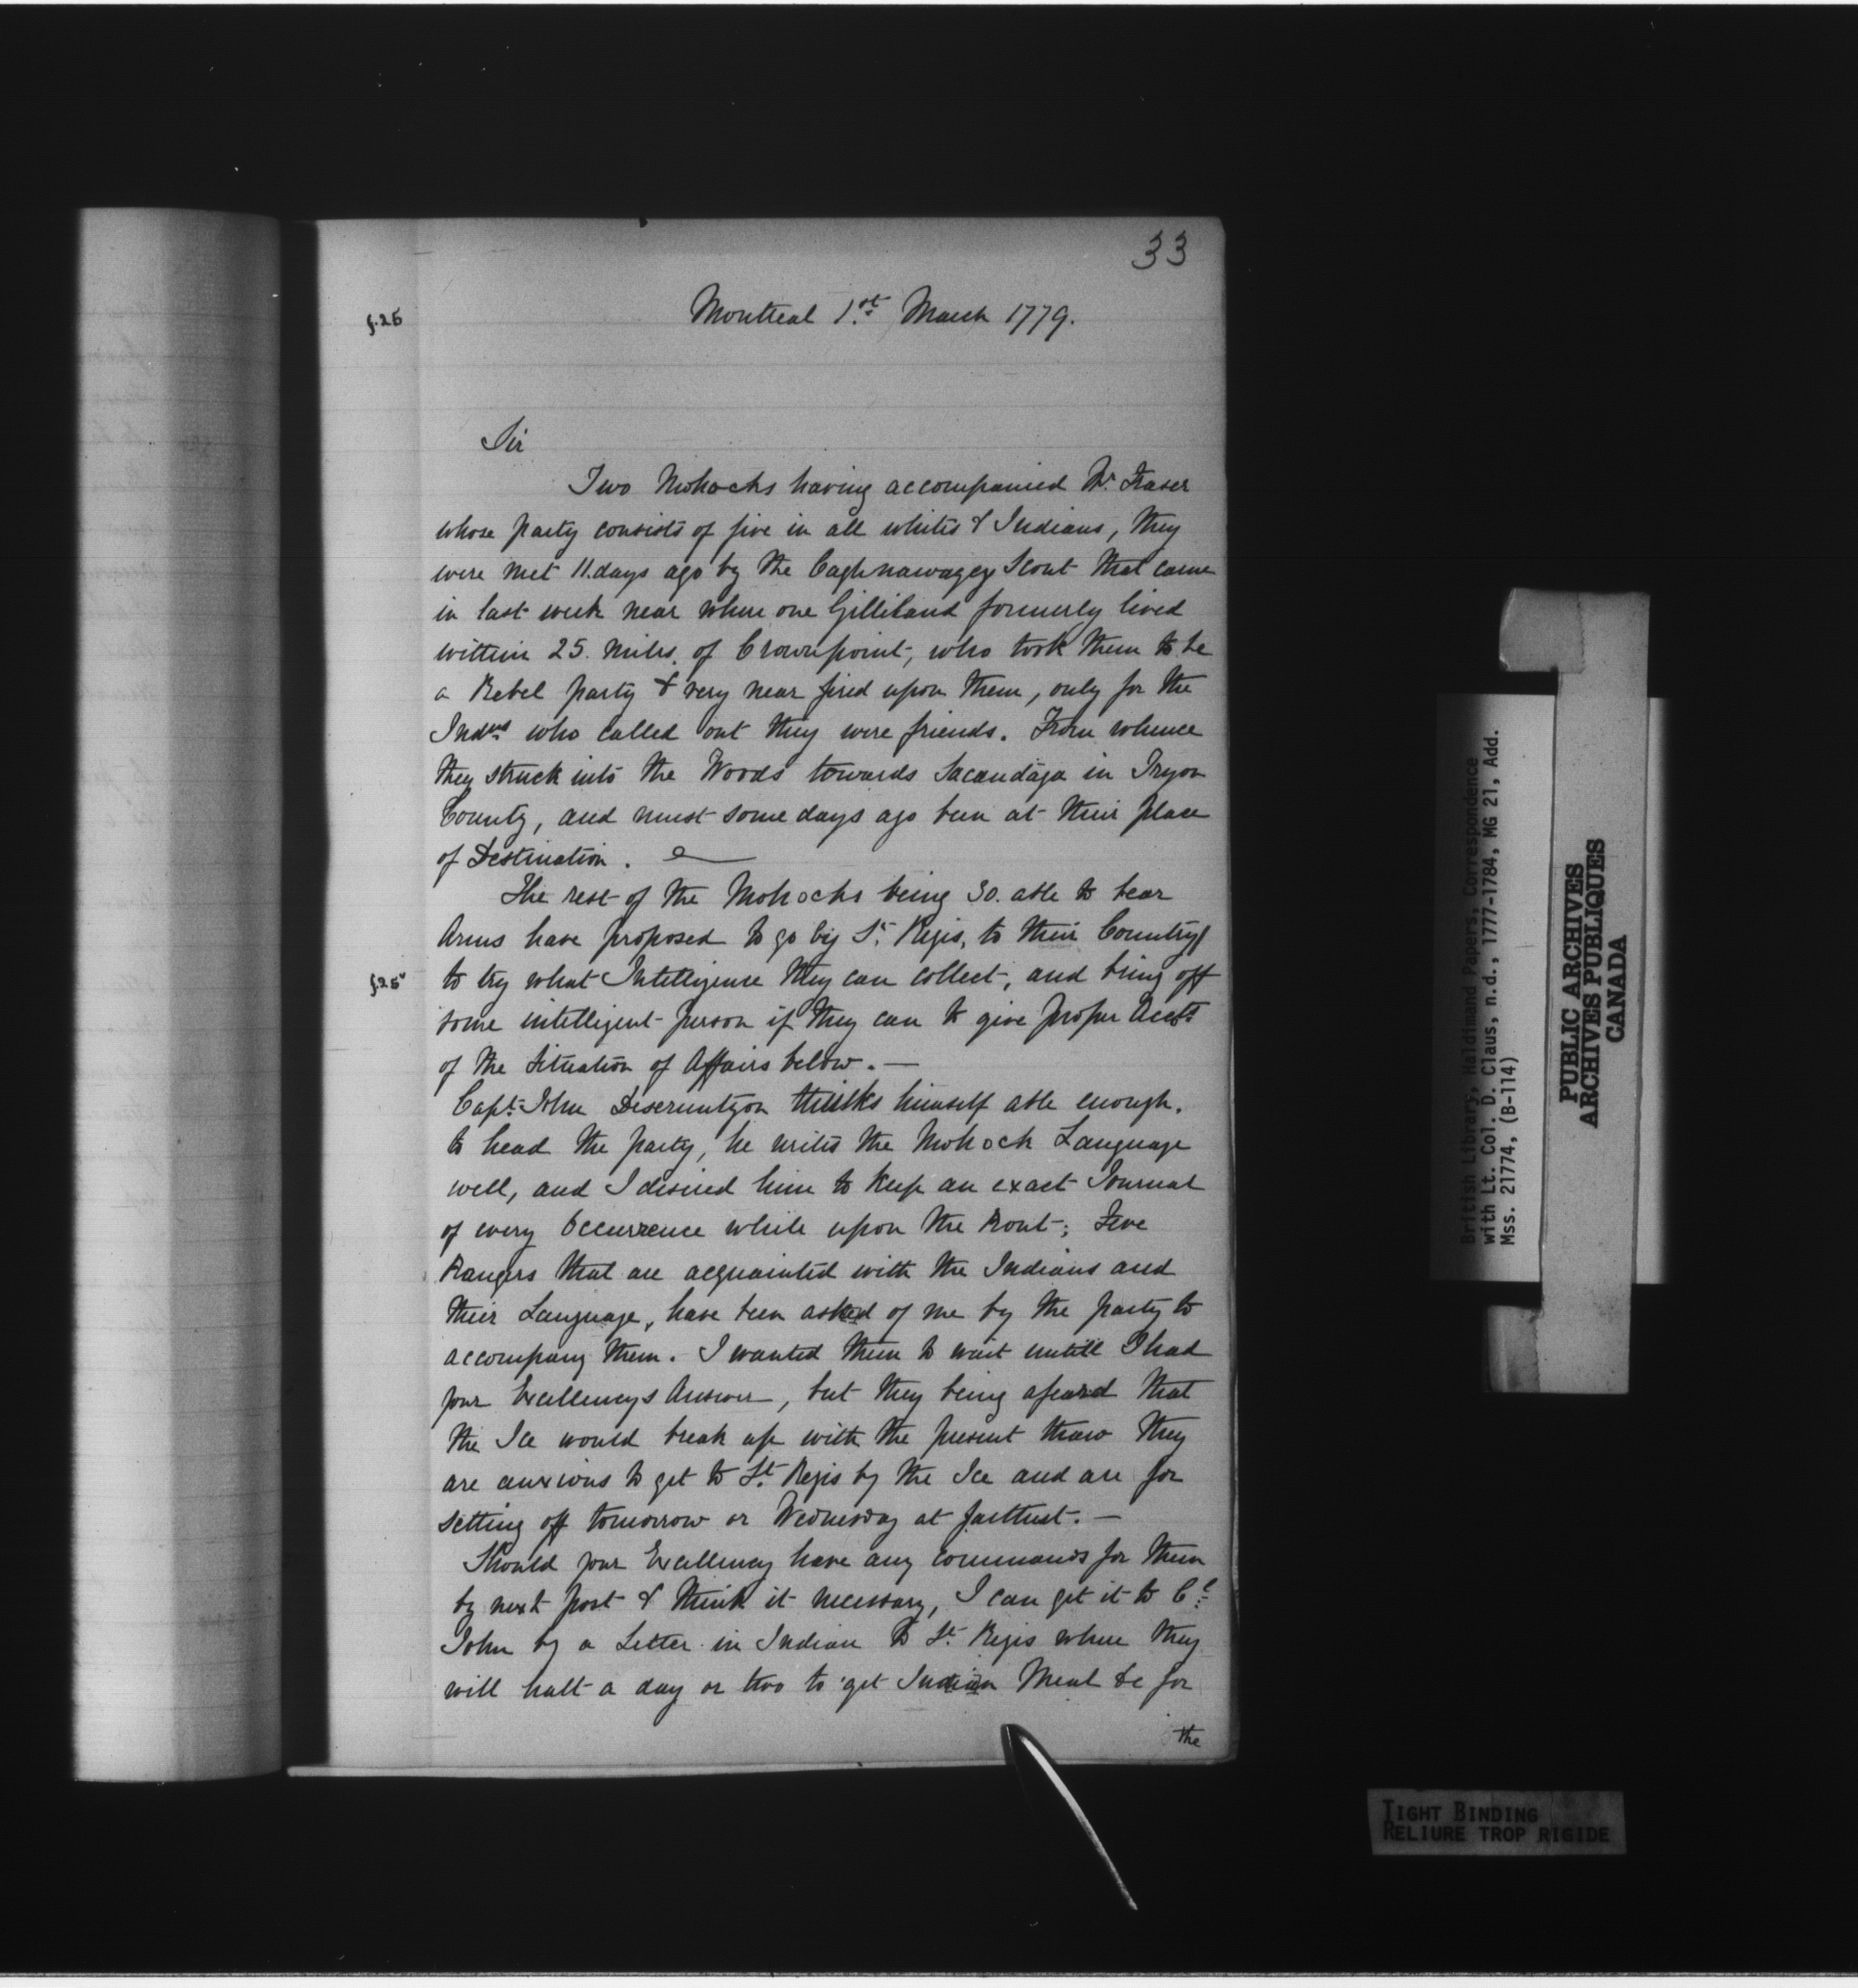 33
f.25
Montreal 1st March 1779.
Sir
Two Mohocks having accompanied Mr. Fraser
whose party consists of five in all whites & Indians, they
were met 11. days ago by the Caghnawagey Scout that came
in last week near where one Gilliland formerly lived
within 25. miles. of Crownpoint, who took them to be
a Rebel party & very near fired upon them, only for the
Indns who called out they were friends. From whence
they struck into the Woods towards Sacandaga in Tryon
County, and must some days ago been at their place
of Destination.
The rest of the Mohocks being 30. able to bear
Arms have proposed to go by St. Regis, to their Country
f.25v
to try what Intelligence they can collect, and bring off
some intelligent person if they can to give proper Accts
of the Situation of Affairs below. —
Capt. John Deseruntyon thinks himself able enough.
to head the party, he writes the Mohock Language
well, and I desired him to keep an exact Journal
of every Occurrence while upon the Rout; Five
Rangers that are acquainted with the Indians and
their Language, have been asked of me by the party to
accompany them. I wanted them to wait untill I had
your Excellencys Answer, but they being afeared that
the Ice would break up with the present thaw they
are anxious to get to St. Regis by the Ice and are for
setting off tomorrow or Wednesday at farthest. —
Should your Excellency have any commands for them
by next post & think it necessary, I can get it to
John by a Letter in Indian to St. Regis where they
will halt a day or two to get Indian Meal &c for
the
British Library, Haldimand Papers, Correspondence
with Lt. Col. D. Claus, n.d., 1777-1784, MG 21, Add.
Mss. 21774, (B-114)
PUBLIC ARCHIVES
ARCHIVES PUBLIQUES
CANADA
TIGHT BINDING
RELIURE TROP RIGIDE